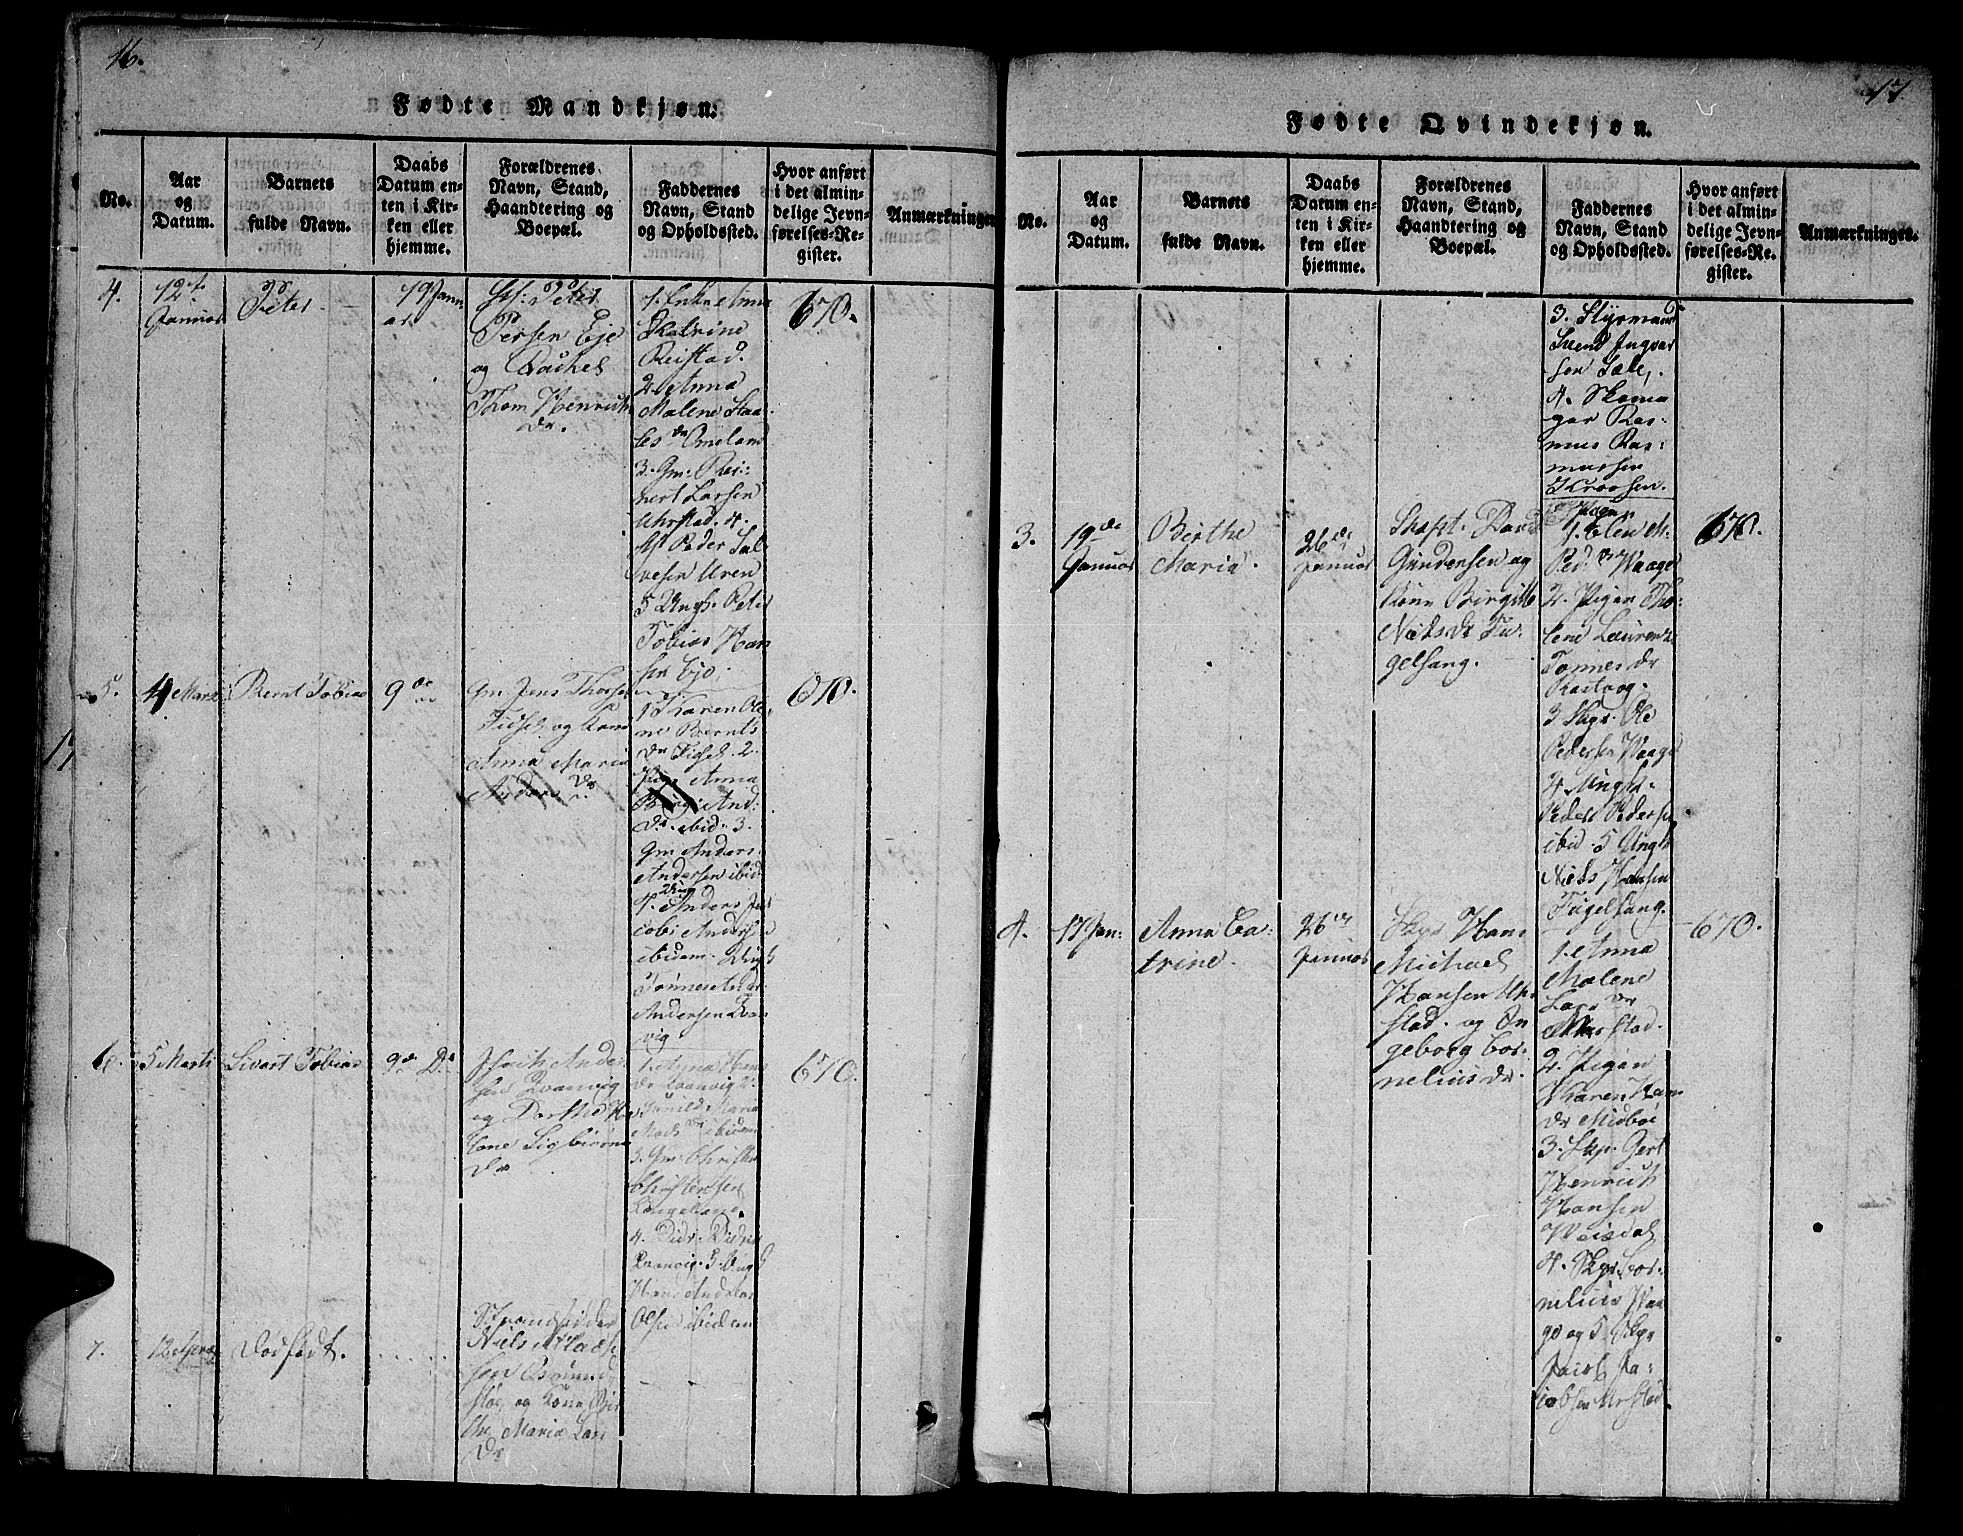 16.
Fødte Mandkjøn.
No.
Aar
og
Datum.
Barnets
fulde Navn.
Daabs
Datum en-
ten i Kir-
ken eller
hjemme.
Forældrenes
Navn, Stand,
Haandtering og
Boepæl.
Faddernes
Navn, Stand
og Opholdssted.
Hvor anført
i det almin-
delige Jevn-
førelses-Re-
gister.
Anmærkninger.
4.
12te
Januar
Peter
19 Janu
ar
Peter
Persen Eje
og Rachel
Thom Henrichs
Dr.
1. Enke Anna
Katrine
Reistad.
2. Anna
Malene Staa
les Dr Omeland
3. Gm: Rei-
nert Larsen
Uhrstad. 4.
Peder Sal
vesen Uren
5 Ungk. Peter
Tobias Han
sen Eje.
670.
5.
4 Marts
Bernt Tobias
9de
Gm Jens Thorsen
Fidsel og Kone
Anna Maria
Anders Dr
1 Karen Ole
ne Bernts
Dr Fidsel. 2.
Pige Anna
And:
Dr. ibid. 3.
Gm Anders
Andersen ibid
4. Anders Jac
obs Andersen
ibidem. Ungk
Tønnes And
Andersen Kvan
vig
670.
6.
5 Marts
Sivart Tobias
9de Ds
Ander
sen Kvanvig
og Dorthe He
lene Sigbiørns
Dr
1. Anna Hans
Dr Kvanvig 2.
Gunild Maria
Mads Dr ibidem
3. Gm: Christen
Christensen
4. Didr. Didr
Kvanvig. 5. Ungk
Hans Andreas
Olsen ibidem
670.
7.
12
Dødfødt.
Strandsidder
Niels Mads
sen Osmund
stø, og Kone Bir
the Maria Lars
Dr
17.
Fødte Qvindekjøn.
No.
Aar
og
Datum.
Barnets
fulde Navn.
Daabs
Datum en-
ten i Kir-
ken eller
hjemme.
Forældrenes
Navn, Stand,
Haandtering og
Boepæl.
Faddernes
Navn, Stand
og Opholdssted.
Hvor anført
i det almin-
delige Jevn-
førelses-Re-
gister.
Anmærkninger.
3. Styrmand
Svend Ingvar
sen Sæle,
4. Skoma
ger Ras-
mus Ras-
mussen
Kroosen.
3.
19de
Januar
Birthe
Maria.
26de
Januar
Skapt. David
Gundersen og
Kone Birgitte
Niels Dr Fu-
gelsang.
Pigen
1. Elen M.
Ped. Dr Waage
2. Pigen Tho-
lene Laurenze
Tønnes Dr
3 Skpr. Ole
Pedersen Waage
4 Ungk.
Peder Pedersen
ibid. 5 Ungk
Niels Hansen
Fugelsang.
670.
4.
17 Jan:
Anna Ca-
trine.
26de
Januar
Skpr Hans
Michael
Hansen Uhr
stad. og In
geborg Cor-
nelius Dr.
1. Anna
Malene
Lars Dr
Uhrstad.
2. Pigen
Karen Hans
Dr Midbøe
3. Skp. Gert
Henrich
Hansen
Weisdal
4. Skpr. Cor-
nelius Waa
ge og 5. Skpr
Jacob Ja-
cobsen Urstad.
670.